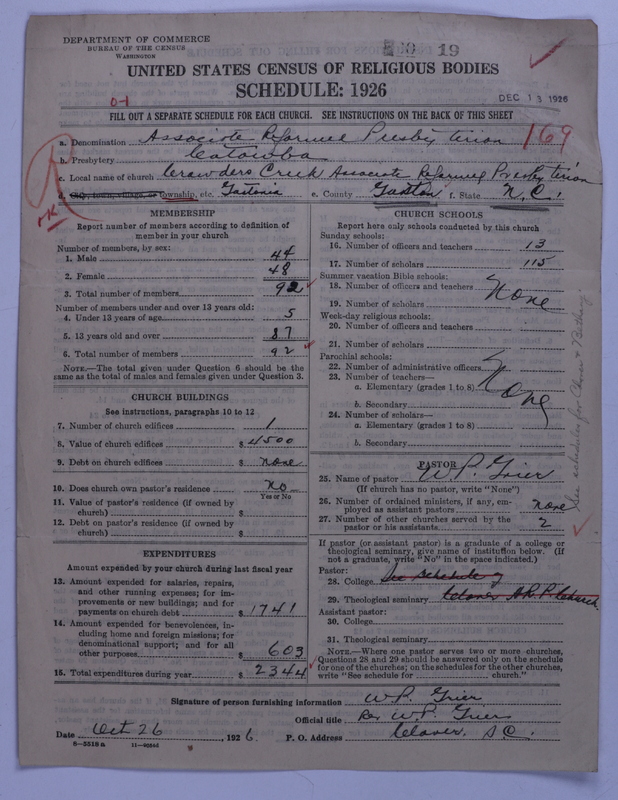 DEPARTMENT OF COMMERCE
BUREAU OF THE CENSUS
WASHINGTON
19
UNITED STATES CENSUS OF RELIGIOUS BODIES
SCHEDULE: 1926
DEC 13 1926
0-1
FILL OUT A SEPARATE SCHEDULE FOR EACH CHURCH. SEE INSTRUCTIONS ON THE BACK OF THIS SHEET
169
a. Denomination Associate Reformed Presbyterian
b. Presbytery Catawba
c. Local name of church Crowders Creek Associate Reformed Presbyterian
d. City, town, village, or township, etc. Gastonia e. County Gaston f. State N.C.
MEMBERSHIP
Report number of members according to definition of member in your church
Number of members, by sex:
1. Male 44
2. Female 48
3. Total number of members 92
Number of members under and over 13 years old:
4. Under 13 years of age 5
5. 13 years old and over 87
6. Total number of members 92
NOTE.—The total given under Question 6 should be the same as the total of males and females given under Question 3.
CHURCH BUILDINGS
See instructions, paragraphs 10 to 12
7. Number of church edifices 1
8. Value of church edifices $ 4500
9. Debt on church edifices $ none
10. Does church own pastor's residence no
Yes or No
11. Value of pastor's residence (if owned by church) $
12. Debt on pastor's residence (if owned by church) $
EXPENDITURES
Amount expended by your church during last fiscal year
13. Amount expended for salaries, repairs, and other running expenses; for improvements or new buildings; and for payments on church debt $ 1741
14. Amount expended for benevolences, including home and foreign missions; for denominational support; and for all other purposes $ 603
15. Total expenditures during year $ 2344
CHURCH SCHOOLS
Report here only schools conducted by this church
Sunday schools:
16. Number of officers and teachers 13
17. Number of scholars 115
Summer vacation Bible schools:
18. Number of officers and teachers None
19. Number of scholars
Week-day religious schools:
20. Number of officers and teachers
21. Number of scholars
Parochial schools:
22. Number of administrative officers None
23. Number of teachers—
a. Elementary (grades 1 to 8)
b. Secondary
24. Number of scholars—
a. Elementary (grades 1 to 8)
b. Secondary
See schedules for Clover & Bethany
PASTOR
25. Name of pastor W. P. Grier
(If church has no pastor, write "None")
26. Number of ordained ministers, if any, employed as assistant pastors none
27. Number of other churches served by the pastor or his assistants 2
If pastor (or assistant pastor) is a graduate of a college or theological seminary, give name of institution below. (If not a graduate, write "No" in the space indicated.)
Pastor:
28. College See schedule of
29. Theological seminary Clover A.R.P. Church
Assistant pastor:
30. College
31. Theological seminary
NOTE.—Where one pastor serves two or more churches, Questions 28 and 29 should be answered only on the schedule for one of the churches; on the schedules for the other churches, write "See schedule for church."
Signature of person furnishing information W. P. Grier
Official title Rev W. P. Grier
Date Oct 26, 1926. P. O. Address Clover, S.C.
8-5518a 11-9034d